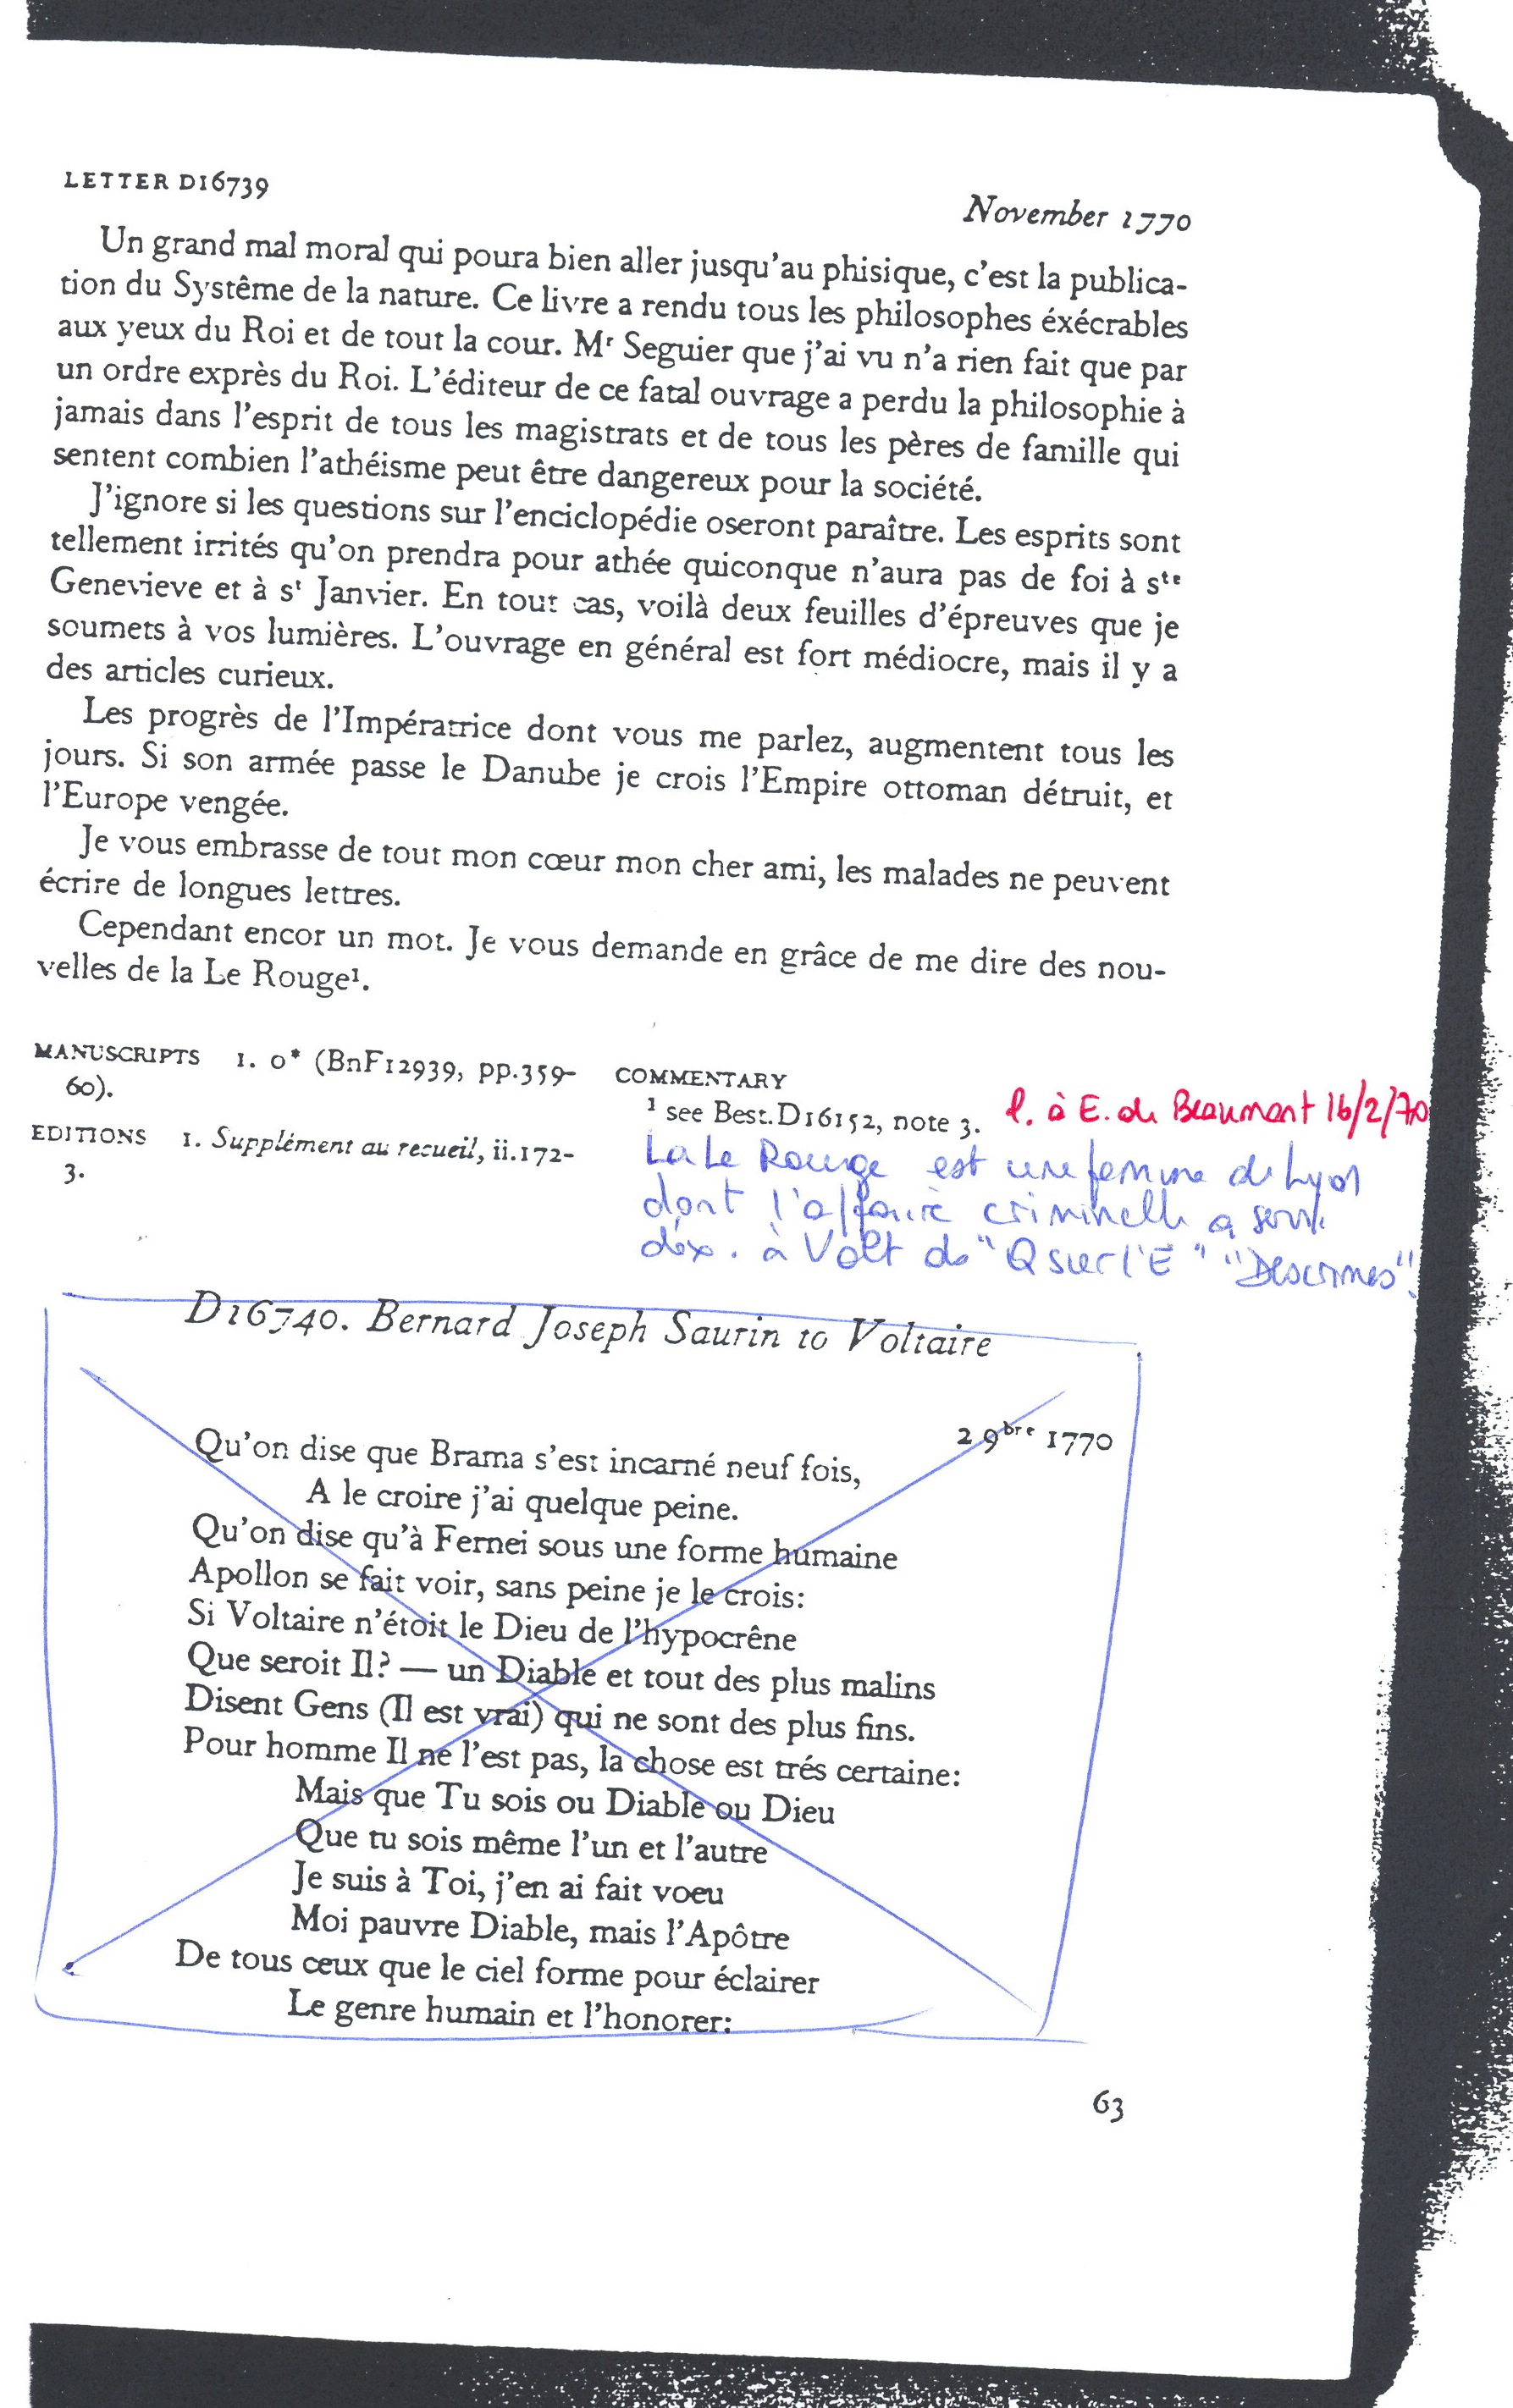 LETTER D16739
November 1770
Un grand mal moral qui poura bien aller jusqu'au phisique, c'est la publica-
tion du Systême de la nature. Ce livre a rendu tous les philosophes éxécrables
aux yeux du Roi et de tout la cour. Mʳ Seguier que j'ai vu n'a rien fait que par
un ordre exprès du Roi. L'éditeur de ce fatal ouvrage a perdu la philosophie à
jamais dans l'esprit de tous les magistrats et de tous les pères de famille qui
sentent combien l'athéisme peut être dangereux pour la société.
J'ignore si les questions sur l'enciclopédie oseront paraître. Les esprits sont
tellement irrités qu'on prendra pour athée quiconque n'aura pas de foi à sᵗᵉ
Genevieve et à sᵗ Janvier. En tout cas, voilà deux feuilles d'épreuves que je
soumets à vos lumières. L'ouvrage en général est fort médiocre, mais il y a
des articles curieux.
Les progrès de l'Impératrice dont vous me parlez, augmentent tous les
jours. Si son armée passe le Danube je crois l'Empire ottoman détruit, et
l'Europe vengée.
Je vous embrasse de tout mon cœur mon cher ami, les malades ne peuvent
écrire de longues lettres.
Cependant encor un mot. Je vous demande en grâce de me dire des nou-
velles de la Le Rouge¹.
MANUSCRIPTS 1. o* (BnF12939, pp.359-
60).
EDITIONS 1. Supplément au recueil, ii.172-
3.
COMMENTARY
¹ see Best.D16152, note 3. l. à E. de Beaumont 16/2/70
La Le Rouge est une femme de Lyon
dont l'affaire criminelle a servi
d'ex. à Volt ds "Q sur l'E" "Des crimes".
D16740. Bernard Joseph Saurin to Voltaire
2 9ᵇʳᵉ 1770
Qu'on dise que Brama s'est incarné neuf fois,
A le croire j'ai quelque peine.
Qu'on dise qu'à Fernei sous une forme humaine
Apollon se fait voir, sans peine je le crois:
Si Voltaire n'étoit le Dieu de l'hypocrêne
Que seroit Il? — un Diable et tout des plus malins
Disent Gens (Il est vrai) qui ne sont des plus fins.
Pour homme Il ne l'est pas, la chose est trés certaine:
Mais que Tu sois ou Diable ou Dieu
Que tu sois même l'un et l'autre
Je suis à Toi, j'en ai fait voeu
Moi pauvre Diable, mais l'Apôtre
De tous ceux que le ciel forme pour éclairer
Le genre humain et l'honorer:
63